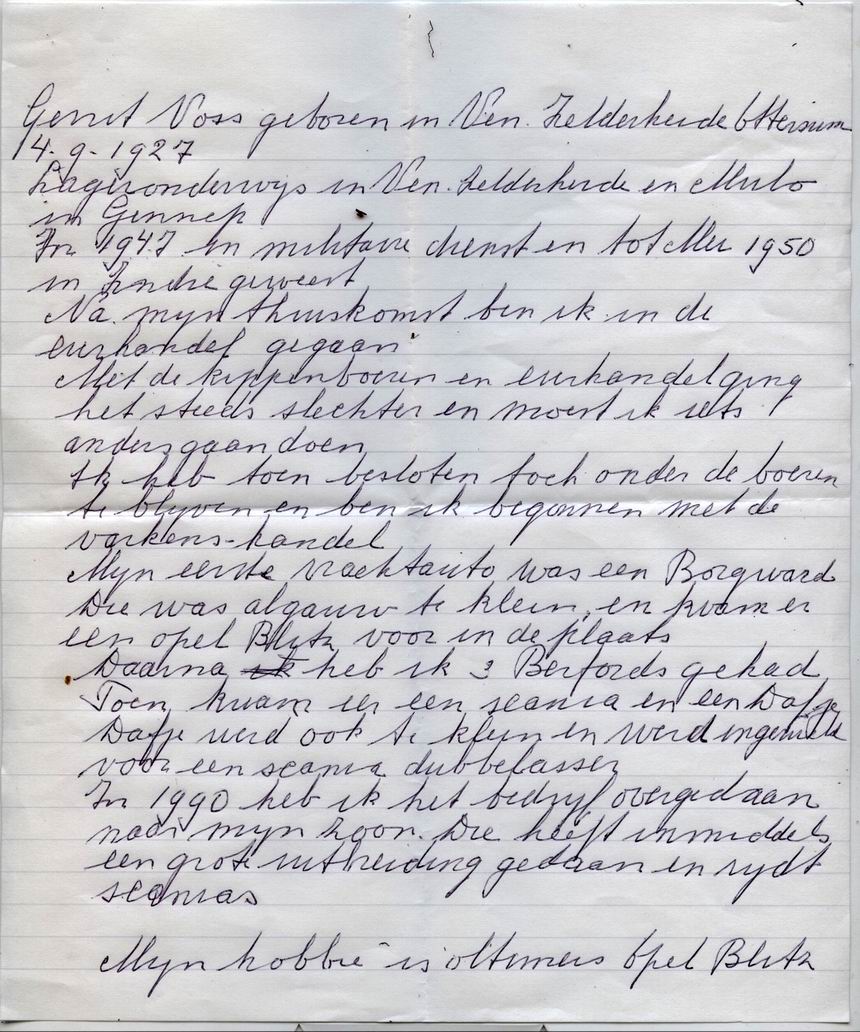 Gerrit Voss geboren in Ven. Zelderheide Ottersum
14-9-1927
Lageronderwijs in Ven. Zelderheide en Mulo
in Gennep
In 1947 in militaire dienst en tot Mei 1950
in Indie geweest
Na mijn thuiskomst ben ik in de
eierhandel gegaan
Met de kippenboeren en eierhandel ging
het steeds slechter en moest ik iets
anders gaan doen
Ik heb toen besloten toch onder de boeren
te blijven en ben ik begonnen met de
varkens-handel
Mijn eerste vrachtauto was een Borgward
Die was algauw te klein, en kwam er
een opel Blitz voor in de plaats
Daarna ik heb ik 3 Berfords gehad
Toen kwam er een scania en een Dafje
Dafje werd ook te klein en werd ingeruild
voor een scania dubbelasser
In 1990 heb ik het bedrijf overgedaan
naar mijn zoon. Die heeft inmiddels
een grote uitbreiding gedaan en rijdt
scanias
Mijn hobbie is oltimers Opel Blitz